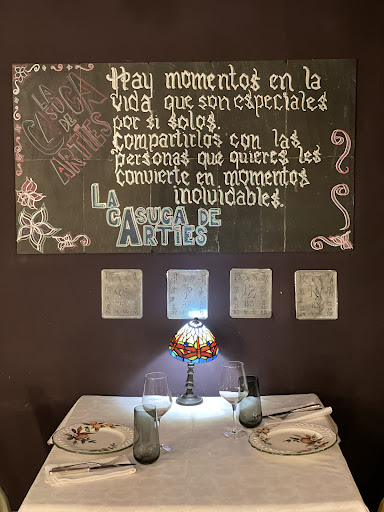 LA
CASUCA
DE
ARTÍES
Hay momentos en la
vida que son especiales
por si solos.
Compartirlos con las
personas que quieres les
convierte en momentos
inolvidables.
LA
CASUGA DE
ARTÍES